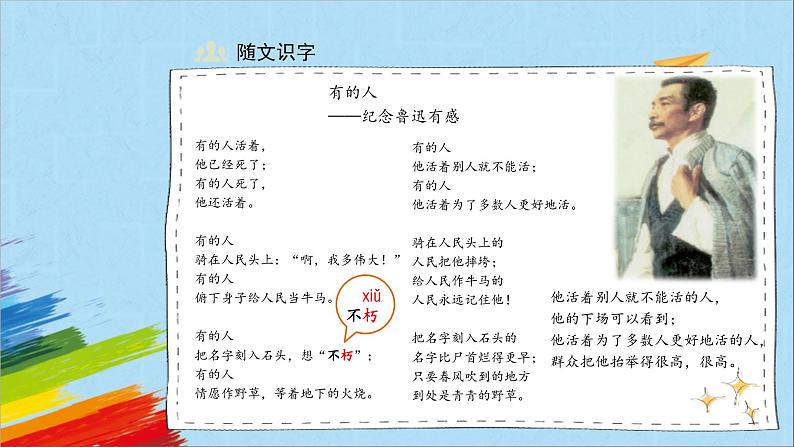 随文识字
有的人
——纪念鲁迅有感
有的人活着，
他已经死了；
有的人死了，
他还活着。
有的人
骑在人民头上：“啊，我多伟大！”
有的人
俯下身子给人民当牛马。
xiǔ
不朽
有的人
把名字刻入石头，想“不朽”；
有的人
情愿作野草，等着地下的火烧。
有的人
他活着别人就不能活；
有的人
他活着为了多数人更好地活。
骑在人民头上的
人民把他摔垮；
给人民作牛马的
人民永远记住他！
把名字刻入石头的
名字比尸首烂得更早；
只要春风吹到的地方
到处是青青的野草。
他活着别人就不能活的人，
他的下场可以看到；
他活着为了多数人更好活的人，
群众把他抬举得很高，很高。